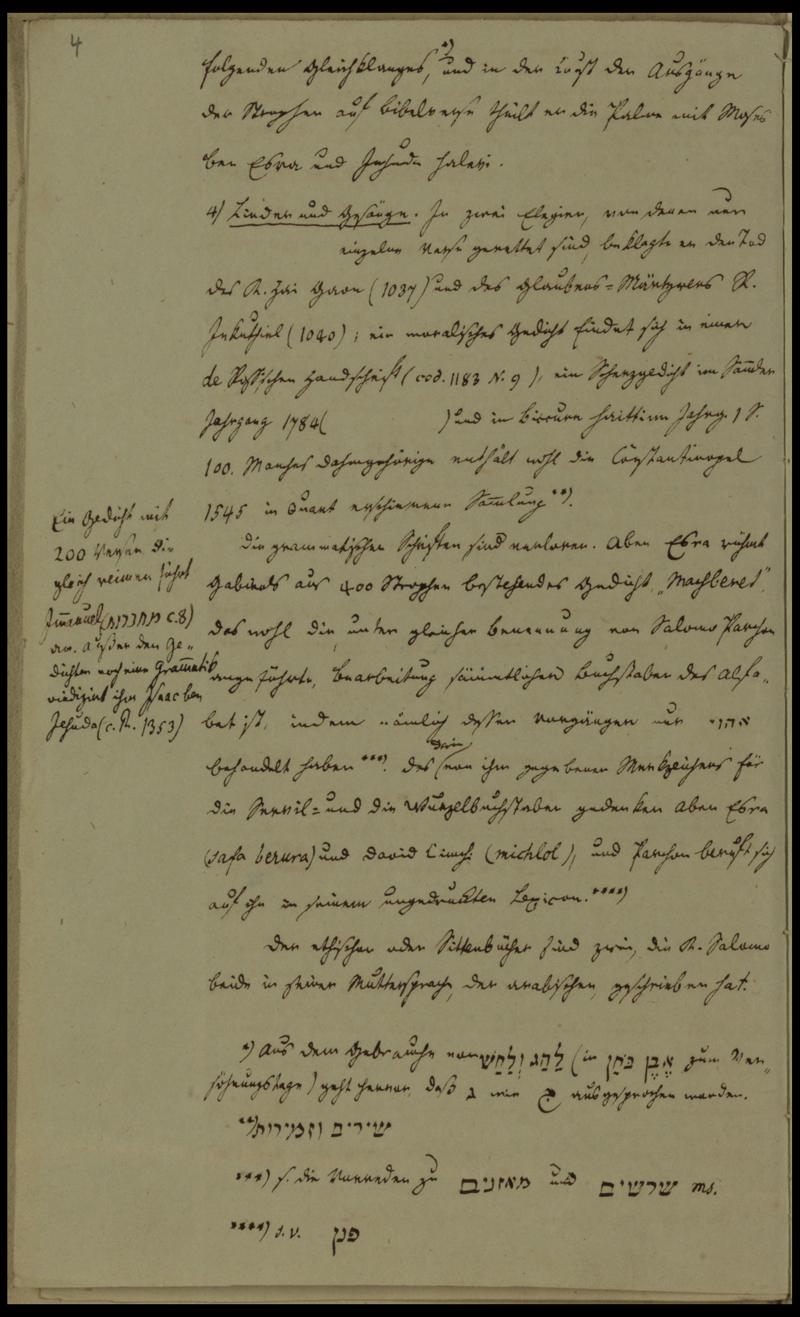 4
folgenden Gleichklanges, *) und in der Lust der Ausgänge
der Strophen auf Bibelverse theilt er die Palme mit Moses
ben Esra und Jehuda halevi.
4) Lieder und Gesänge. In zwei Elegien, von denen nur
einzelne Verse gerettet sind, beklagte er den Tod
des R. Hai Gaon (1037) und des Glaubens=Märtyrers R.
Jekuthiel (1040); ein moralisches Gedicht findet sich in einer
de Rossischen Handschrift (cod. 1183 N. 9), ein Scherzgedicht im Sammler
Jahrgang 1784 ( ) und in Biccure haittim Jahrg. 1 S.
100. Manches dahingehörige enthält wohl die Constantinopel
1545 in Quart erschienene Sammlung **).
Die grammatischen Schriften sind verloren. Aben Esra rühmt
Gabirols aus 400 Strophen bestehendes Gedicht, "Machberet",
das wohl die, unter gleicher Benennung von Salomo Parchon
angeführte, Bearbeitung sämmtlicher Buchstaben des Alfa„
bet ist, indem nämlich dessen Vorgänger nur אהוי
behandelt haben ***). Des von ihm gegebenen Merkzeichens für
die Servil= und die Wurzelbuchstaben gedenken Aben Esra
(safa berura) und David Kimchi (michlol), und Parchon beruft sich
auf ihn in seinem ungedruckten Lexicon. ****)
Der ethischen oder Sittenbücher sind zwei, die R. Salomo
beide in seiner Muttersprache, der arabischen, geschrieben hat.
Ein Gedicht mit
200 Versen die
gleich reimen führt
Immanuel (מחברות c. 8)
an. Außer den Ge„
dichten noch eine Grammatik
vindizirt ihm Isaac ben
Jehuda (c. A. 1353)
*) Aus dem Gebrauche von לַהַג וְלַחַשׁ (in אֶבֶן בֹּחַן zum Ver„
söhnungstage) geht hervor, daß ג wie ח ausgesprochen worden.
**) שירים וזמירות
***) s. die Vorreden zu מאזנים und שרשים ms.
****) s. v. פנן